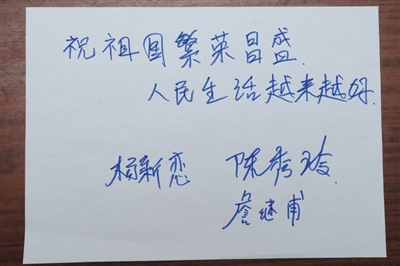 祝祖国繁荣昌盛.
人民生活越来越好.
杨新恋 陈秀玲
詹继甫